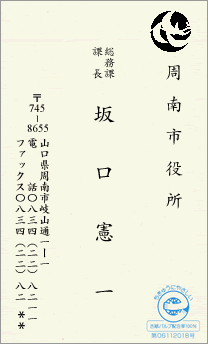 周南市役所
総務課
課長
坂口憲一
〒745-8655
山口県周南市岐山通一-一
電 話〇八三四(二二)八二一一
ファックス〇八三四(二二)八二**
古紙パルプ配合率100%
第06112018号